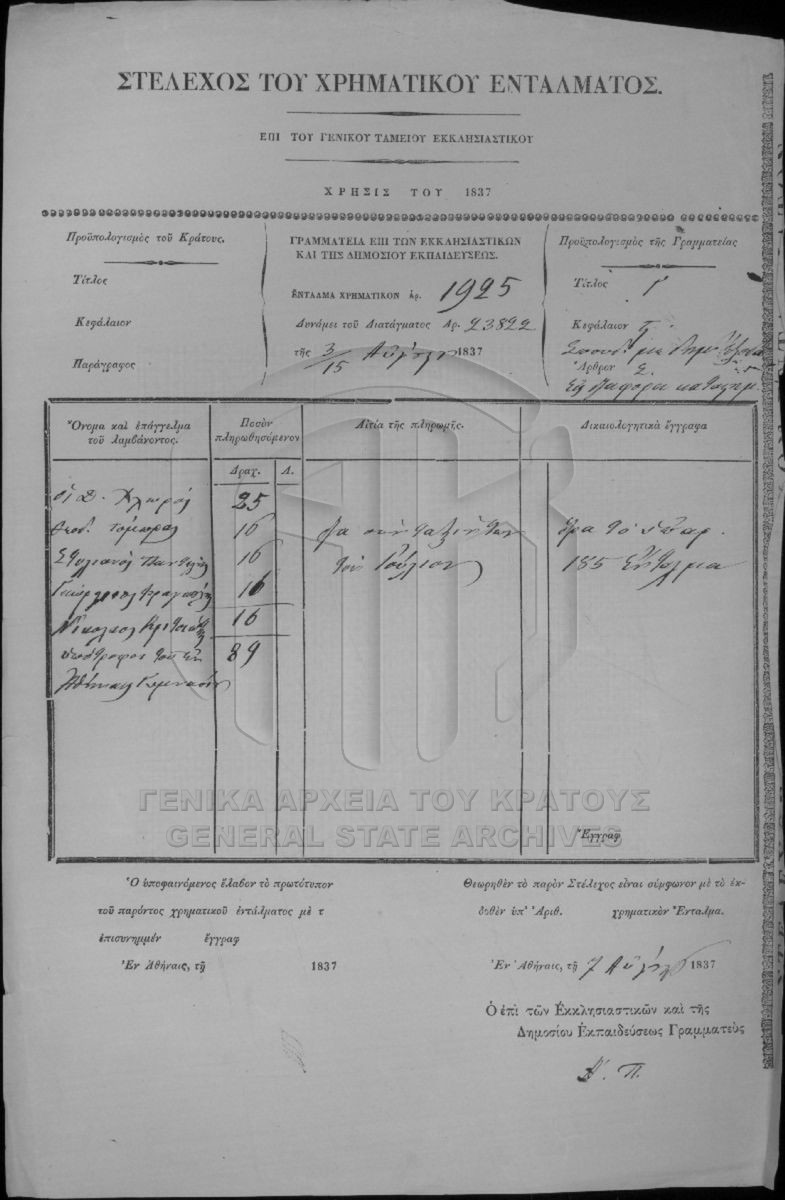 ΣΤΕΛΕΧΟΣ ΤΟΥ ΧΡΗΜΑΤΙΚΟΥ ΕΝΤΑΛΜΑΤΟΣ.
ΕΠΙ ΤΟΥ ΓΕΝΙΚΟΥ ΤΑΜΕΙΟΥ ΕΚΚΛΗΣΙΑΣΤΙΚΟΥ
ΧΡΗΣΙΣ ΤΟΥ 1837
Προϋπολογισμὸς τοῦ Κράτους.
Τίτλος
Κεφάλαιον
Παράγραφος
ΓΡΑΜΜΑΤΕΙΑ ΕΠΙ ΤΩΝ ΕΚΚΛΗΣΙΑΣΤΙΚΩΝ
ΚΑΙ ΤΗΣ ΔΗΜΟΣΙΟΥ ΕΚΠΑΙΔΕΥΣΕΩΣ.
ΕΝΤΑΛΜΑ ΧΡΗΜΑΤΙΚΟΝ ἀρ. 1925
Δυνάμει τοῦ Διατάγματος Αρ. 23822
τῆς 3/15 Αὐγούστου 1837
Προϋπολογισμὸς τῆς Γραμματείας
Τίτλος Γ
Κεφάλαιον
Ἄρθρον
Εἰς διάφορα
Ὄνομα καὶ ἐπάγγελμα
τοῦ λαμβάνοντος.
Ποσὸν
πληρωθησόμενον
Δραχ. Λ.
Αἰτία τῆς πληρωμῆς.
Δικαιολογητικὰ ἔγγραφα
οἱ Δ. 25
Θεοδ. 16
Στυλιανὸς 16
Γεώργιος 16
Νικόλαος 16
ὑπότροφοι τοῦ ἐν 89
Ἀθήναις Γυμνασίου
Διὰ σύνταξίν των
τὸν Ἰούλιον
Ὅρα τὸ ὑπ' ἀρ.
185 Ἔνταλμα
ΓΕΝΙΚΑ ΑΡΧΕΙΑ ΤΟΥ ΚΡΑΤΟΥΣ
GENERAL STATE ARCHIVES
Ἔγγραφ
Ὁ ὑποφαινόμενος ἔλαβον τὸ πρωτότυπον
τοῦ παρόντος χρηματικοῦ ἐντάλματος μὲ τ
ἐπισυνημμέν ἔγγραφ
Ἐν Ἀθήναις, τῇ 1837
Θεωρηθὲν τὸ παρὸν Στέλεχος εἶναι σύμφωνον μὲ τὸ ἐκ-
δοθὲν ὑπ' Ἀριθ. χρηματικὸν Ἔνταλμα.
Ἐν Ἀθήναις, τῇ 7 Αὐγούστου 1837
Ὁ ἐπὶ τῶν Ἐκκλησιαστικῶν καὶ τῆς
Δημοσίου Ἐκπαιδεύσεως Γραμματεὺς
Α. Π.